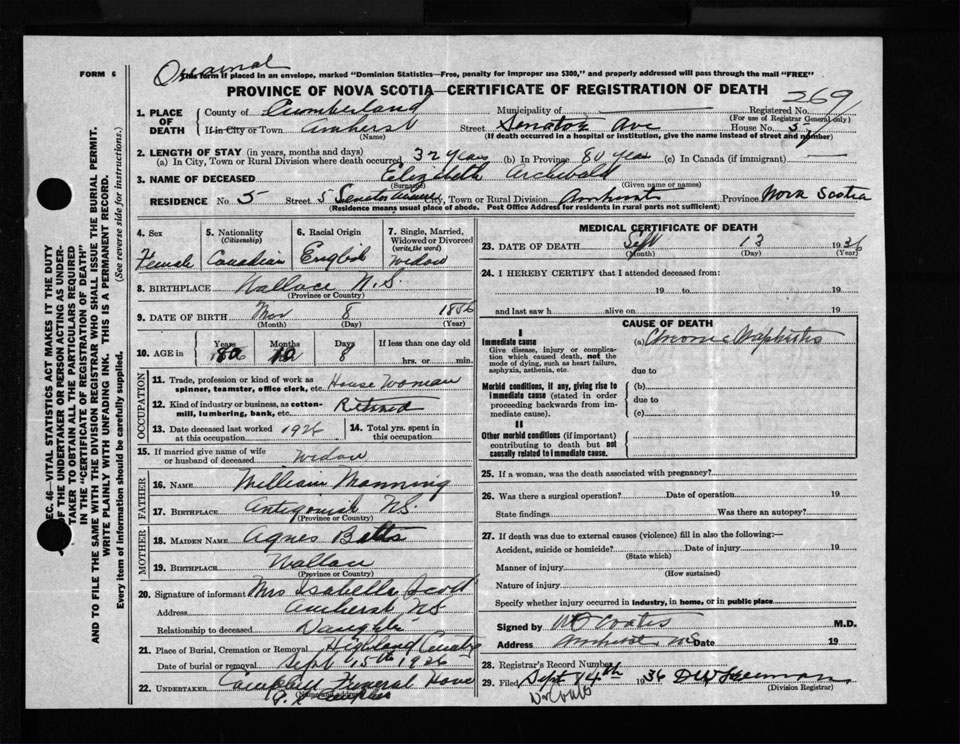 Original
FORM 6
This form if placed in an envelope, marked "Dominion Statistics—Free, penalty for improper use $300," and properly addressed will pass through the mail "FREE"
PROVINCE OF NOVA SCOTIA—CERTIFICATE OF REGISTRATION OF DEATH
269
1. PLACE OF DEATH
County of Cumberland Municipality of Registered No.
(For use of Registrar General only)
If in City or Town Amherst Street Senator Ave House No. 5
(Name) (If death occurred in a hospital or institution, give the name instead of street and number)
2. LENGTH OF STAY (in years, months and days)
(a) In City, Town or Rural Division where death occurred 32 years (b) In Province 80 years (c) In Canada (if immigrant)
3. NAME OF DECEASED Elizabeth Archibald
(Surname) (Given name or names)
RESIDENCE No. 5 Street City, Town or Rural Division Amherst Province Nova Scotia
(Residence means usual place of abode. Post Office Address for residents in rural parts not sufficient)
4. Sex
Female
5. Nationality
(Citizenship)
Canadian
6. Racial Origin
English
7. Single, Married, Widowed or Divorced
(write the word)
Widow
8. BIRTHPLACE Wallace N.S.
(Province or Country)
9. DATE OF BIRTH Nov 8
(Month) (Day) (Year)
10. AGE in Years Months Days If less than one day old
80 10 8 hrs. or min.
OCCUPATION
11. Trade, profession or kind of work as spinner, teamster, office clerk, etc. House Woman
12. Kind of industry or business, as cotton-mill, lumbering, bank, etc. Retired
13. Date deceased last worked at this occupation 1926
14. Total yrs. spent in this occupation
15. If married give name of wife or husband of deceased widow
FATHER
16. NAME William Manning
17. BIRTHPLACE Antigonish N.S.
(Province or Country)
MOTHER
18. MAIDEN NAME Agnes
19. BIRTHPLACE Wallace
(Province or Country)
20. Signature of informant Mrs Isabella Scott
Address Amherst NS
Relationship to deceased Daughter
21. Place of Burial, Cremation or Removal Highland
Date of burial or removal Sept 15th 1936
22. UNDERTAKER Campbell Funeral Home
MEDICAL CERTIFICATE OF DEATH
23. DATE OF DEATH Sept 13 1936
(Month) (Day) (Year)
24. I HEREBY CERTIFY that I attended deceased from:
19 to 19
and last saw h alive on 19
CAUSE OF DEATH
I
Immediate cause
Give disease, injury or complication which caused death, not the mode of dying, such as heart failure, asphyxia, asthenia, etc.
(a) Chronic Nephritis
due to
Morbid conditions, if any, giving rise to immediate cause (stated in order proceeding backwards from immediate cause).
(b)
due to
(c)
II
Other morbid conditions (if important) contributing to death but not causally related to immediate cause.
25. If a woman, was the death associated with pregnancy?
26. Was there a surgical operation? Date of operation 19
State findings Was there an autopsy?
27. If death was due to external causes (violence) fill in also the following:—
Accident, suicide or homicide? Date of injury 19
(State which)
Manner of injury
(How sustained)
Nature of injury
Specify whether injury occurred in industry, in home, or in public place
Signed by Coates M.D.
Address Amherst NS Date 19
28. Registrar's Record Number
29. Filed Sept 14th 1936
(Division Registrar)
SEC. 46—VITAL STATISTICS ACT MAKES IT THE DUTY
OF THE UNDERTAKER OR PERSON ACTING AS UNDERTAKER TO OBTAIN ALL THE PARTICULARS REQUIRED
IN THE "CERTIFICATE OF REGISTRATION OF DEATH"
AND TO FILE THE SAME WITH THE DIVISION REGISTRAR WHO SHALL ISSUE THE BURIAL PERMIT.
WRITE PLAINLY WITH UNFADING INK. THIS IS A PERMANENT RECORD.
Every item of information should be carefully supplied. (See reverse side for instructions.)